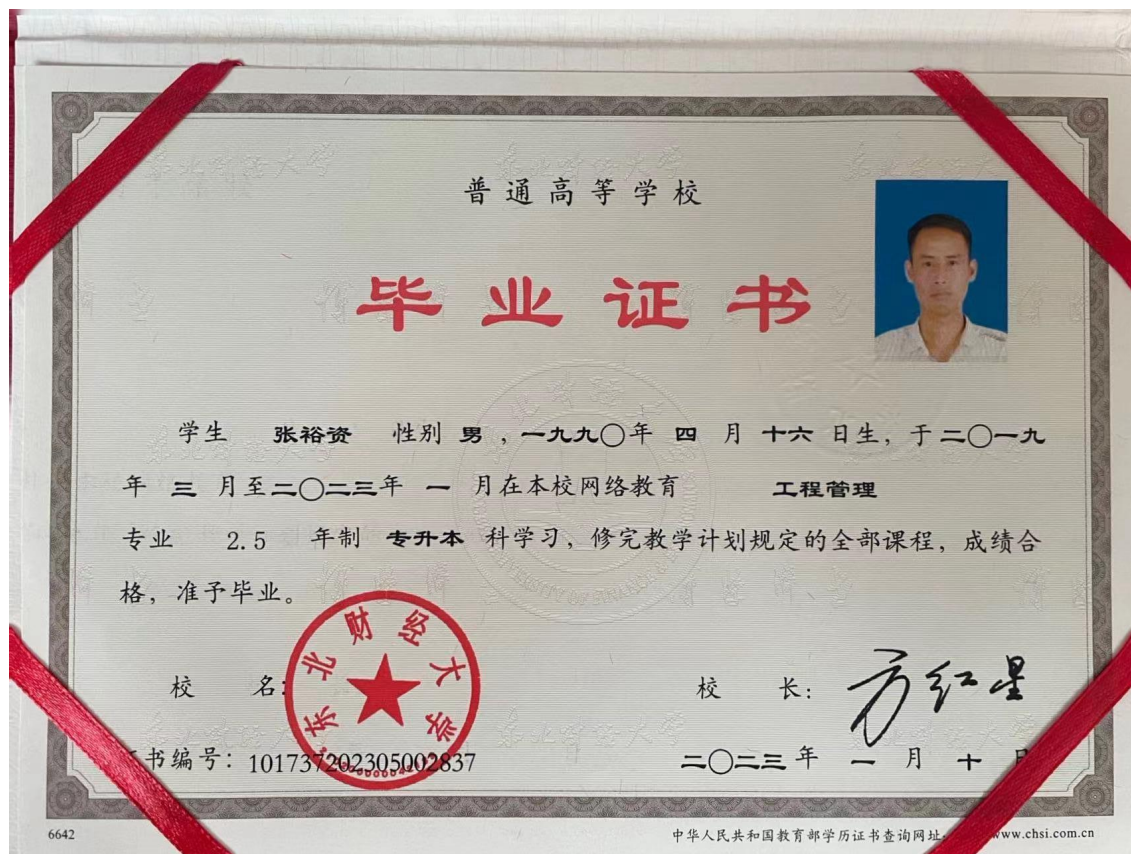 普通高等学校
毕业证书
学生 张裕资 性别 男 ,一九九〇年 四 月 十六 日生, 于二〇一九
年 三 月至二〇二三年 一 月在本校网络教育 工程管理
专业 2.5 年制 专升本 科学习, 修完教学计划规定的全部课程, 成绩合
格, 准予毕业。
东北财经大学
校 名:
校 长: 方红星
书编号: 101737202305002837
二〇二三年 一 月 十
6642
中华人民共和国教育部学历证书查询网址 www.chsi.com.cn